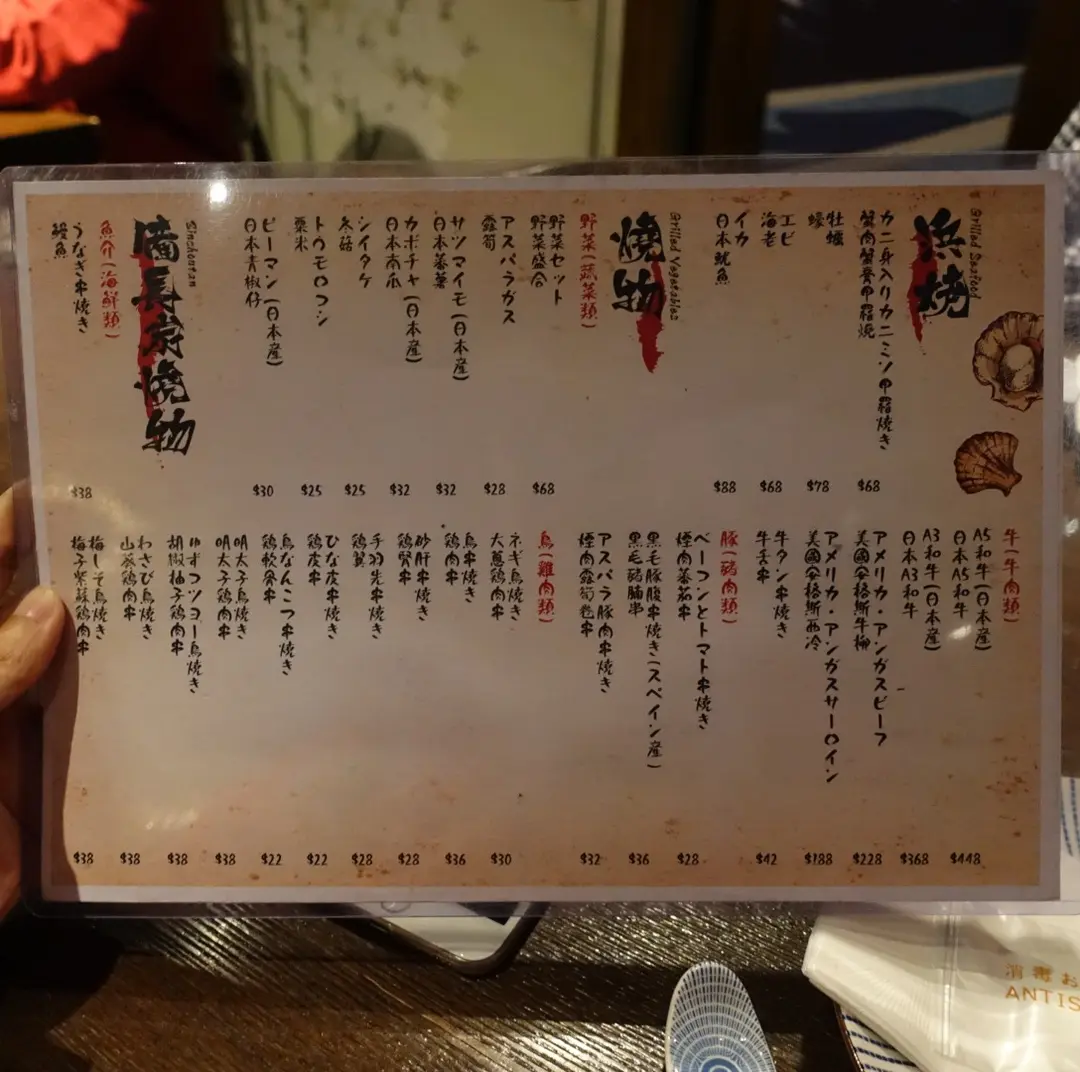 浜焼
Grilled Seafood
カニ身入りカニミソ甲羅焼き
蟹肉蟹膏甲羅燒
$68
牡蠣
蠔
$78
エビ
海老
$68
イカ
日本魷魚
$88
燒物
Grilled Vegetables
野菜(蔬菜類)
野菜セット
野菜盛合
$68
アスパラガス
露筍
$28
サツマイモ(日本産)
日本蕃薯
$32
カボチャ(日本産)
日本南瓜
$32
シイタケ
冬菇
$25
トウモロコシ
粟米
$25
ピーマン(日本産)
日本青椒仔
$30
備長炭燒物
Binchoutan
魚介(海鮮類)
うなぎ串焼き
鰻魚
$38
牛(牛肉類)
A5和牛(日本産)
日本A5和牛
$448
A3和牛(日本産)
日本A3和牛
$368
アメリカ・アンガスビーフ
美國安格斯牛柳
$228
アメリカ・アンガスサーロイン
美國安格斯西冷
$188
牛タン串焼き
牛舌串
$42
豚(豬肉類)
ベーコンとトマト串焼き
煙肉蕃茄串
$28
黒毛豚腹串焼き(スペイン産)
黑毛豬腩串
$36
アスパラ豚肉串焼き
煙肉露筍卷串
$32
鳥(雞肉類)
ネギ鳥焼き
大蔥鶏肉串
$30
鳥串焼き
鶏肉串
$36
砂肝串焼き
鶏腎串
$28
手羽先串焼き
鶏翼
$28
ひな皮串焼き
鶏皮串
$22
鳥なんこつ串焼き
鶏軟骨串
$22
明太子鳥焼き
明太子鶏肉串
$38
ゆずコツョー鳥焼き
胡椒柚子鶏肉串
$38
わさび鳥焼き
山葵鶏肉串
$38
梅しそ鳥焼き
梅子紫蘇鶏肉串
$38
消毒お
ANTIS